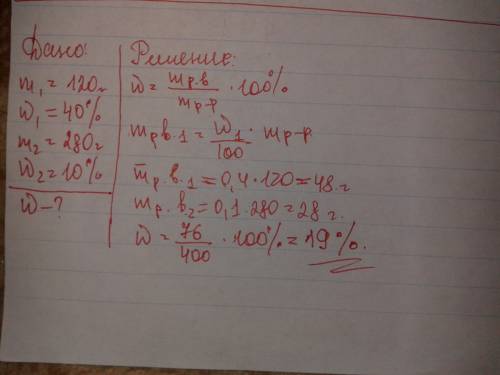 Дано:
m₁ = 120 г
ω₁ = 40%
m₂ = 280 г
ω₂ = 10%
ω – ?
Решение:
ω = mр.в / mр-р · 100%
mрв.1 = ω₁ / 100 · mр-р
mр.в.₁ = 0,4 · 120 = 48 г
mр.в₂ = 0,1 · 280 = 28 г.
ω = 76 / 400 · 100% = 19%.